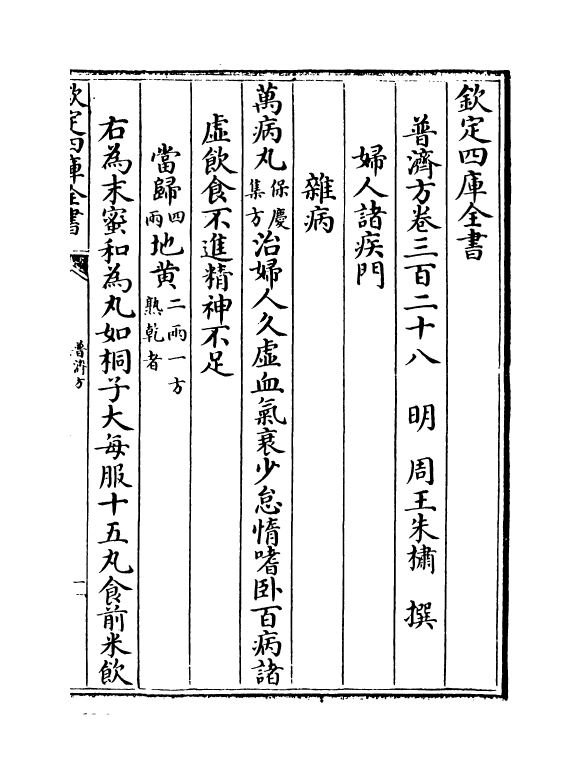 欽定四庫全書
普濟方卷三百二十八 明 周王朱橚 撰
婦人諸疾門
雜病
萬病丸保慶集方治婦人久虛血氣衰少怠惰嗜卧百病諸
虛飲食不進精神不足
當歸四兩地黄二兩一方熟乾者
右為末蜜和為丸如桐子大每服十五丸食前米飲
欽定四庫全書
普濟方
一